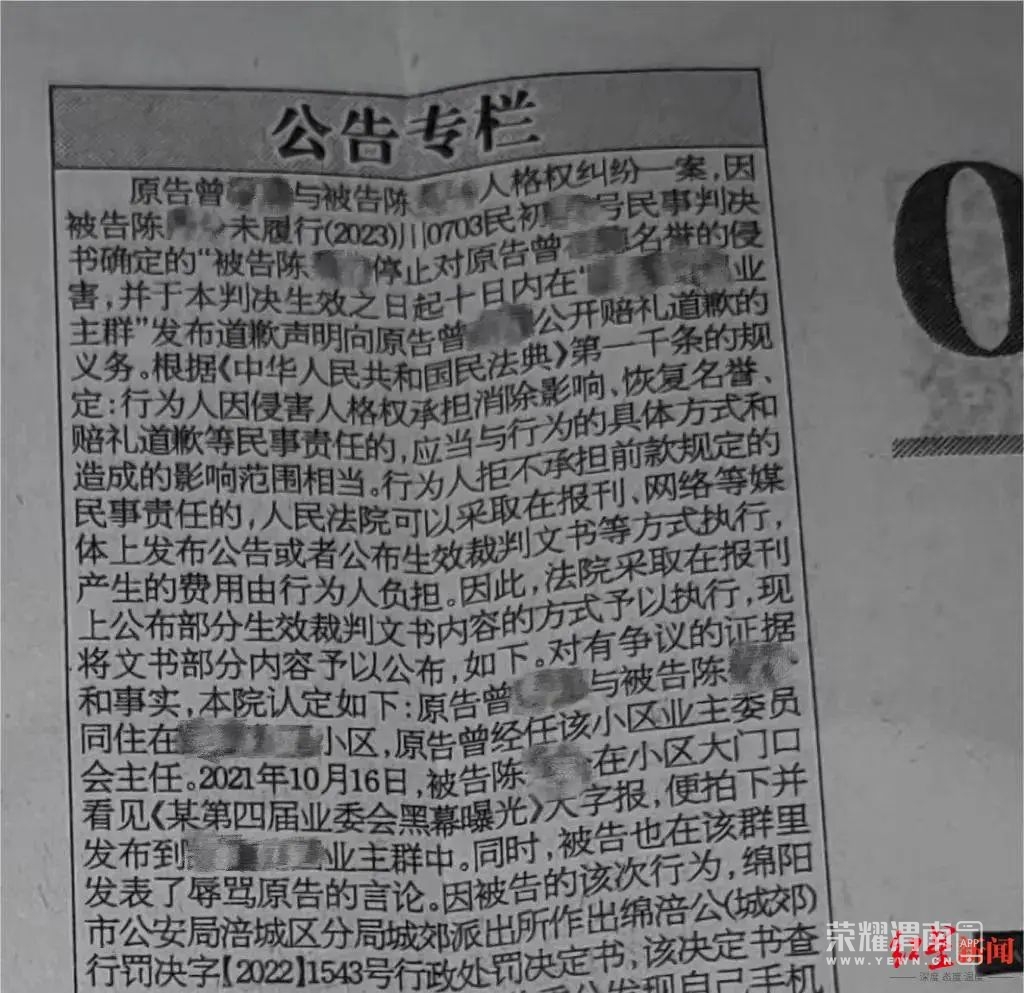 公告专栏
原告曾与被告陈人格权纠纷一案,因
被告陈未履行(2023)川0703民初号民事判决
书确定的“被告陈停止对原告曾名誉的侵
害,并于本判决生效之日起十日内在“业
主群”发布道歉声明向原告曾公开赔礼道歉的
义务。根据《中华人民共和国民法典》第一千条的规
定:行为人因侵害人格权承担消除影响、恢复名誉、
赔礼道歉等民事责任的,应当与行为的具体方式和
造成的影响范围相当。行为人拒不承担前款规定的
民事责任的,人民法院可以采取在报刊、网络等媒
体上发布公告或者公布生效裁判文书等方式执行,
产生的费用由行为人负担。因此,法院采取在报刊
上公布部分生效裁判文书内容的方式予以执行,现
将文书部分内容予以公布,如下。对有争议的证据
和事实,本院认定如下:原告曾与被告陈
同住在小区,原告曾经任该小区业主委员
会主任。2021年10月16日,被告陈在小区大门口
看见《某第四届业委会黑幕曝光》大字报,便拍下并
发布到业主群中。同时,被告也在该群里
发表了辱骂原告的言论。因被告的该次行为,绵阳
市公安局涪城区分局城郊派出所作出绵涪公(城郊)
行罚决字【2022】1543号行政处罚决定书,该决定书查
发现自己手机
0
荣耀渭南 APP
WWW.YEWN.CN
红星新闻
深度 态度 温度